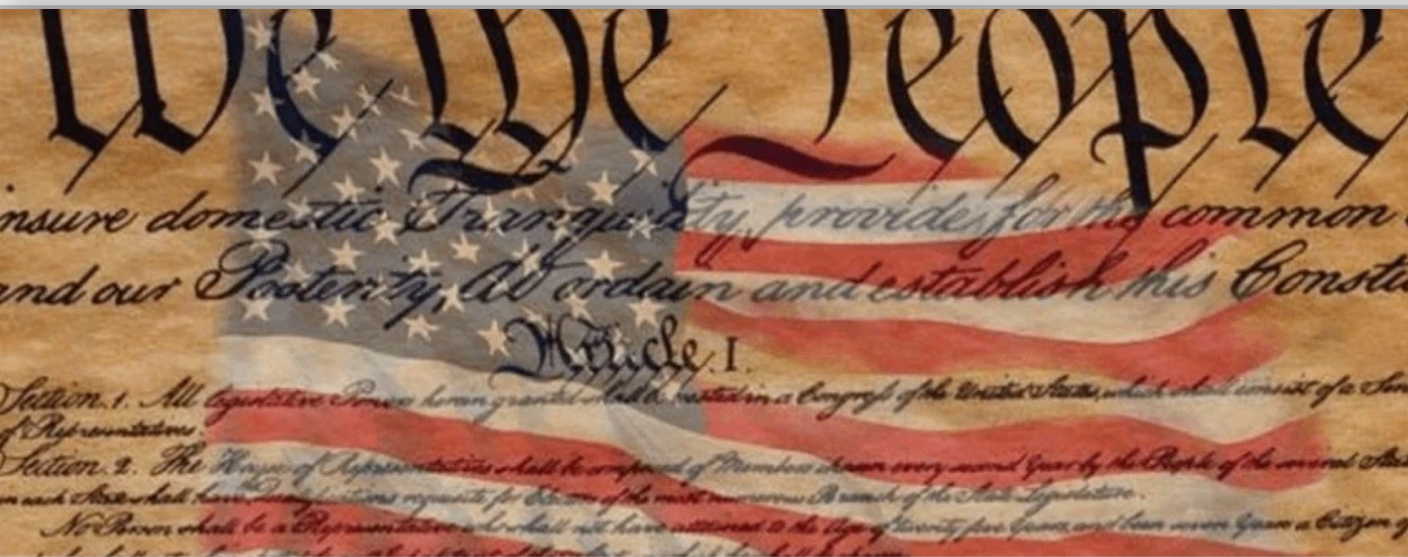 We the People
nsure domestic Tranquility, provide for the common
and our Posterity, do ordain and establish this Constit
Article. I.
Section. 1. All legislative Powers herein granted shall be vested in a Congress of the United States, which shall consist of a Sen
of Representatives.
Section. 2. The House of Representatives shall be composed of Members chosen every second Year by the People of the several Stat
in each State shall have the Qualifications requisite for Electors of the most numerous Branch of the State Legislature.
No Person shall be a Representative who shall not have attained to the Age of twenty five Years, and been seven Years a Citizen of